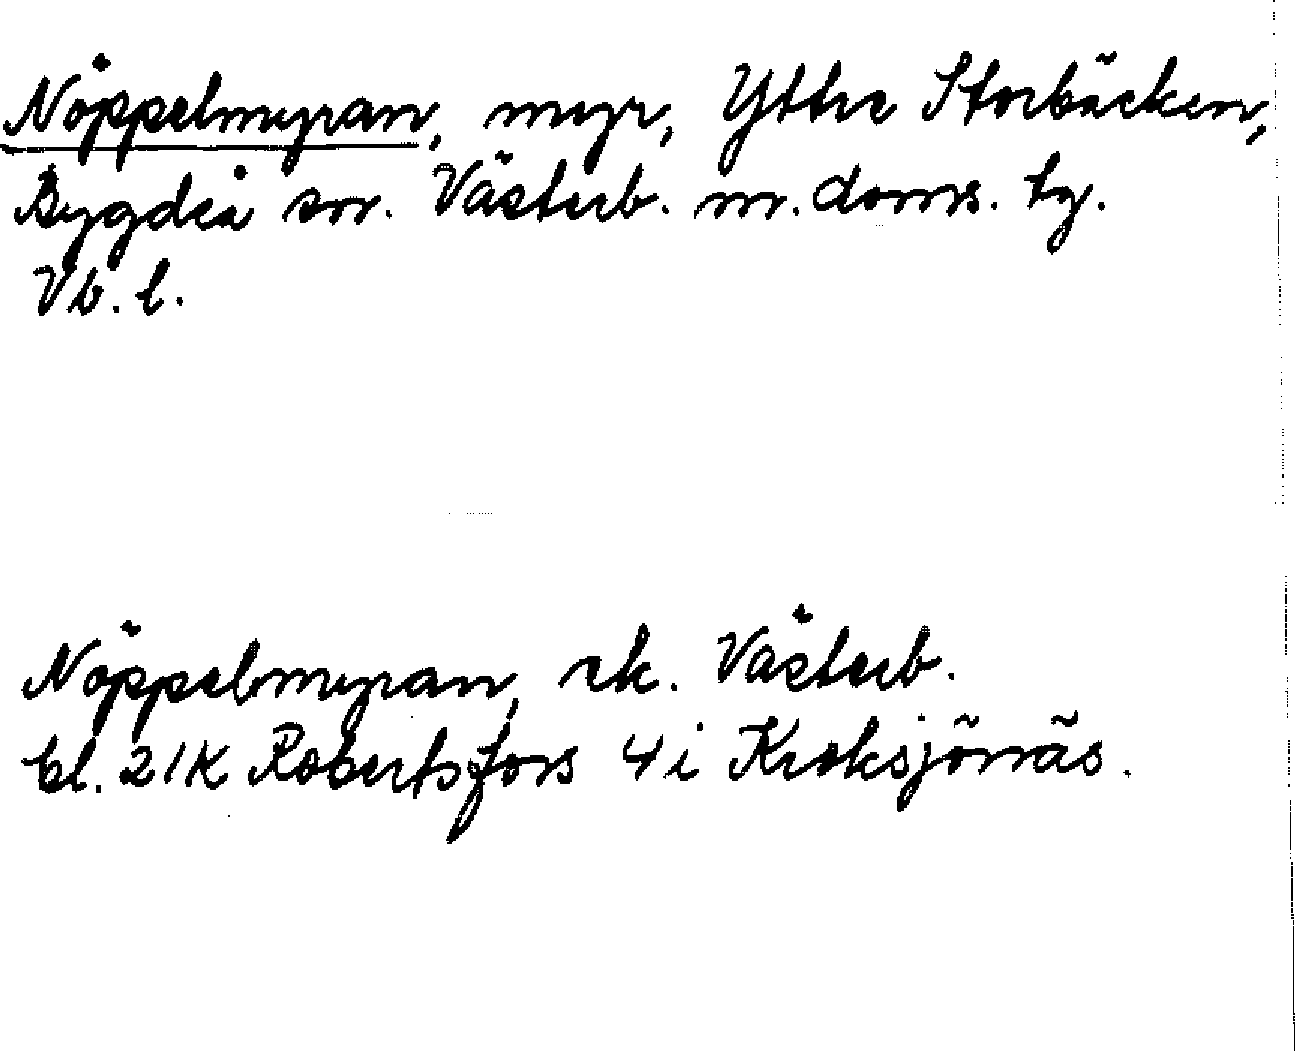 Nöppelmyran, myr, Yttre Storbäcken,
Bygdeå sn. Västerb. m. doms. tg.
Vb. l.
Nöppelmyran, ek. Västerb.
bl. 21K Robertsfors 4 i Kroksjönäs.